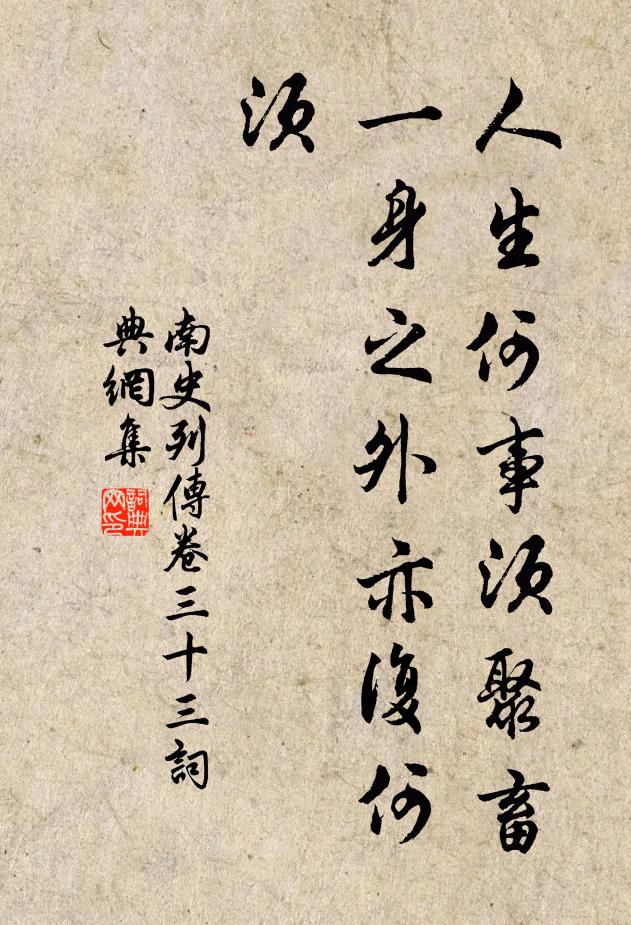 人生何事須聚畜
一身之外亦復何
須
南史列傳卷三十三詞
典網集
詞典网印